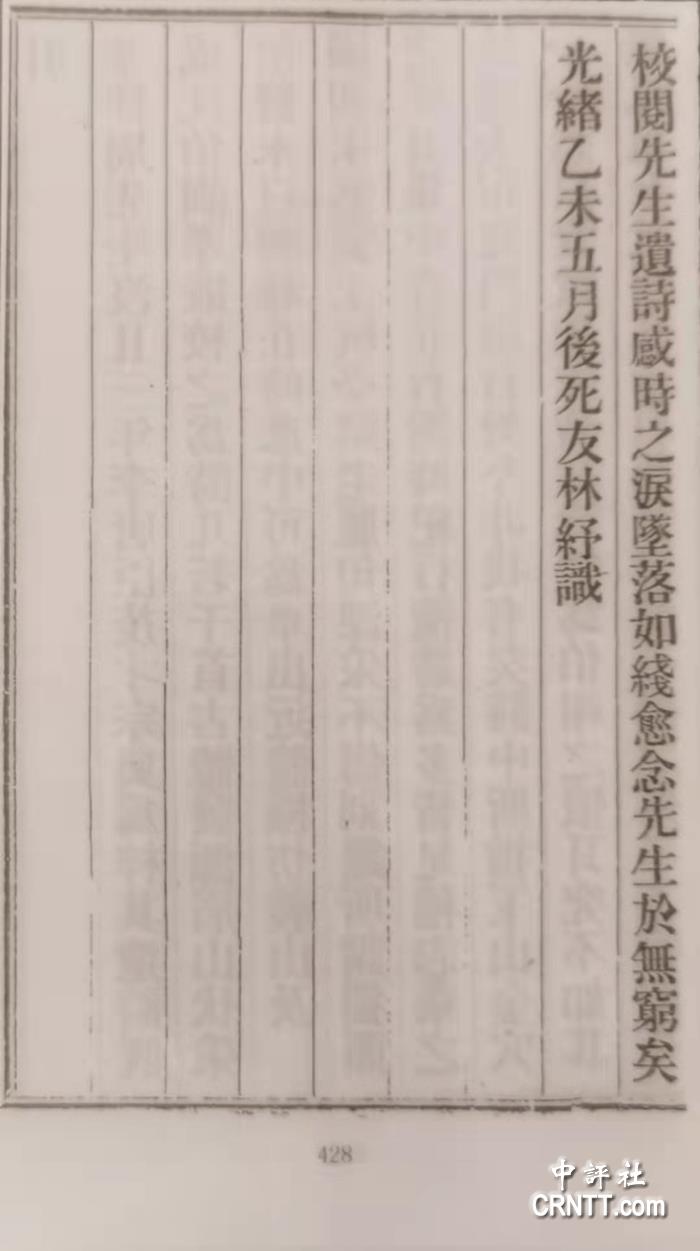 校閱先生遺詩感時之淚墜落如綫愈念先生於無窮矣
光緒乙未五月後死友林紓識
428
中評社
CRNTT.com